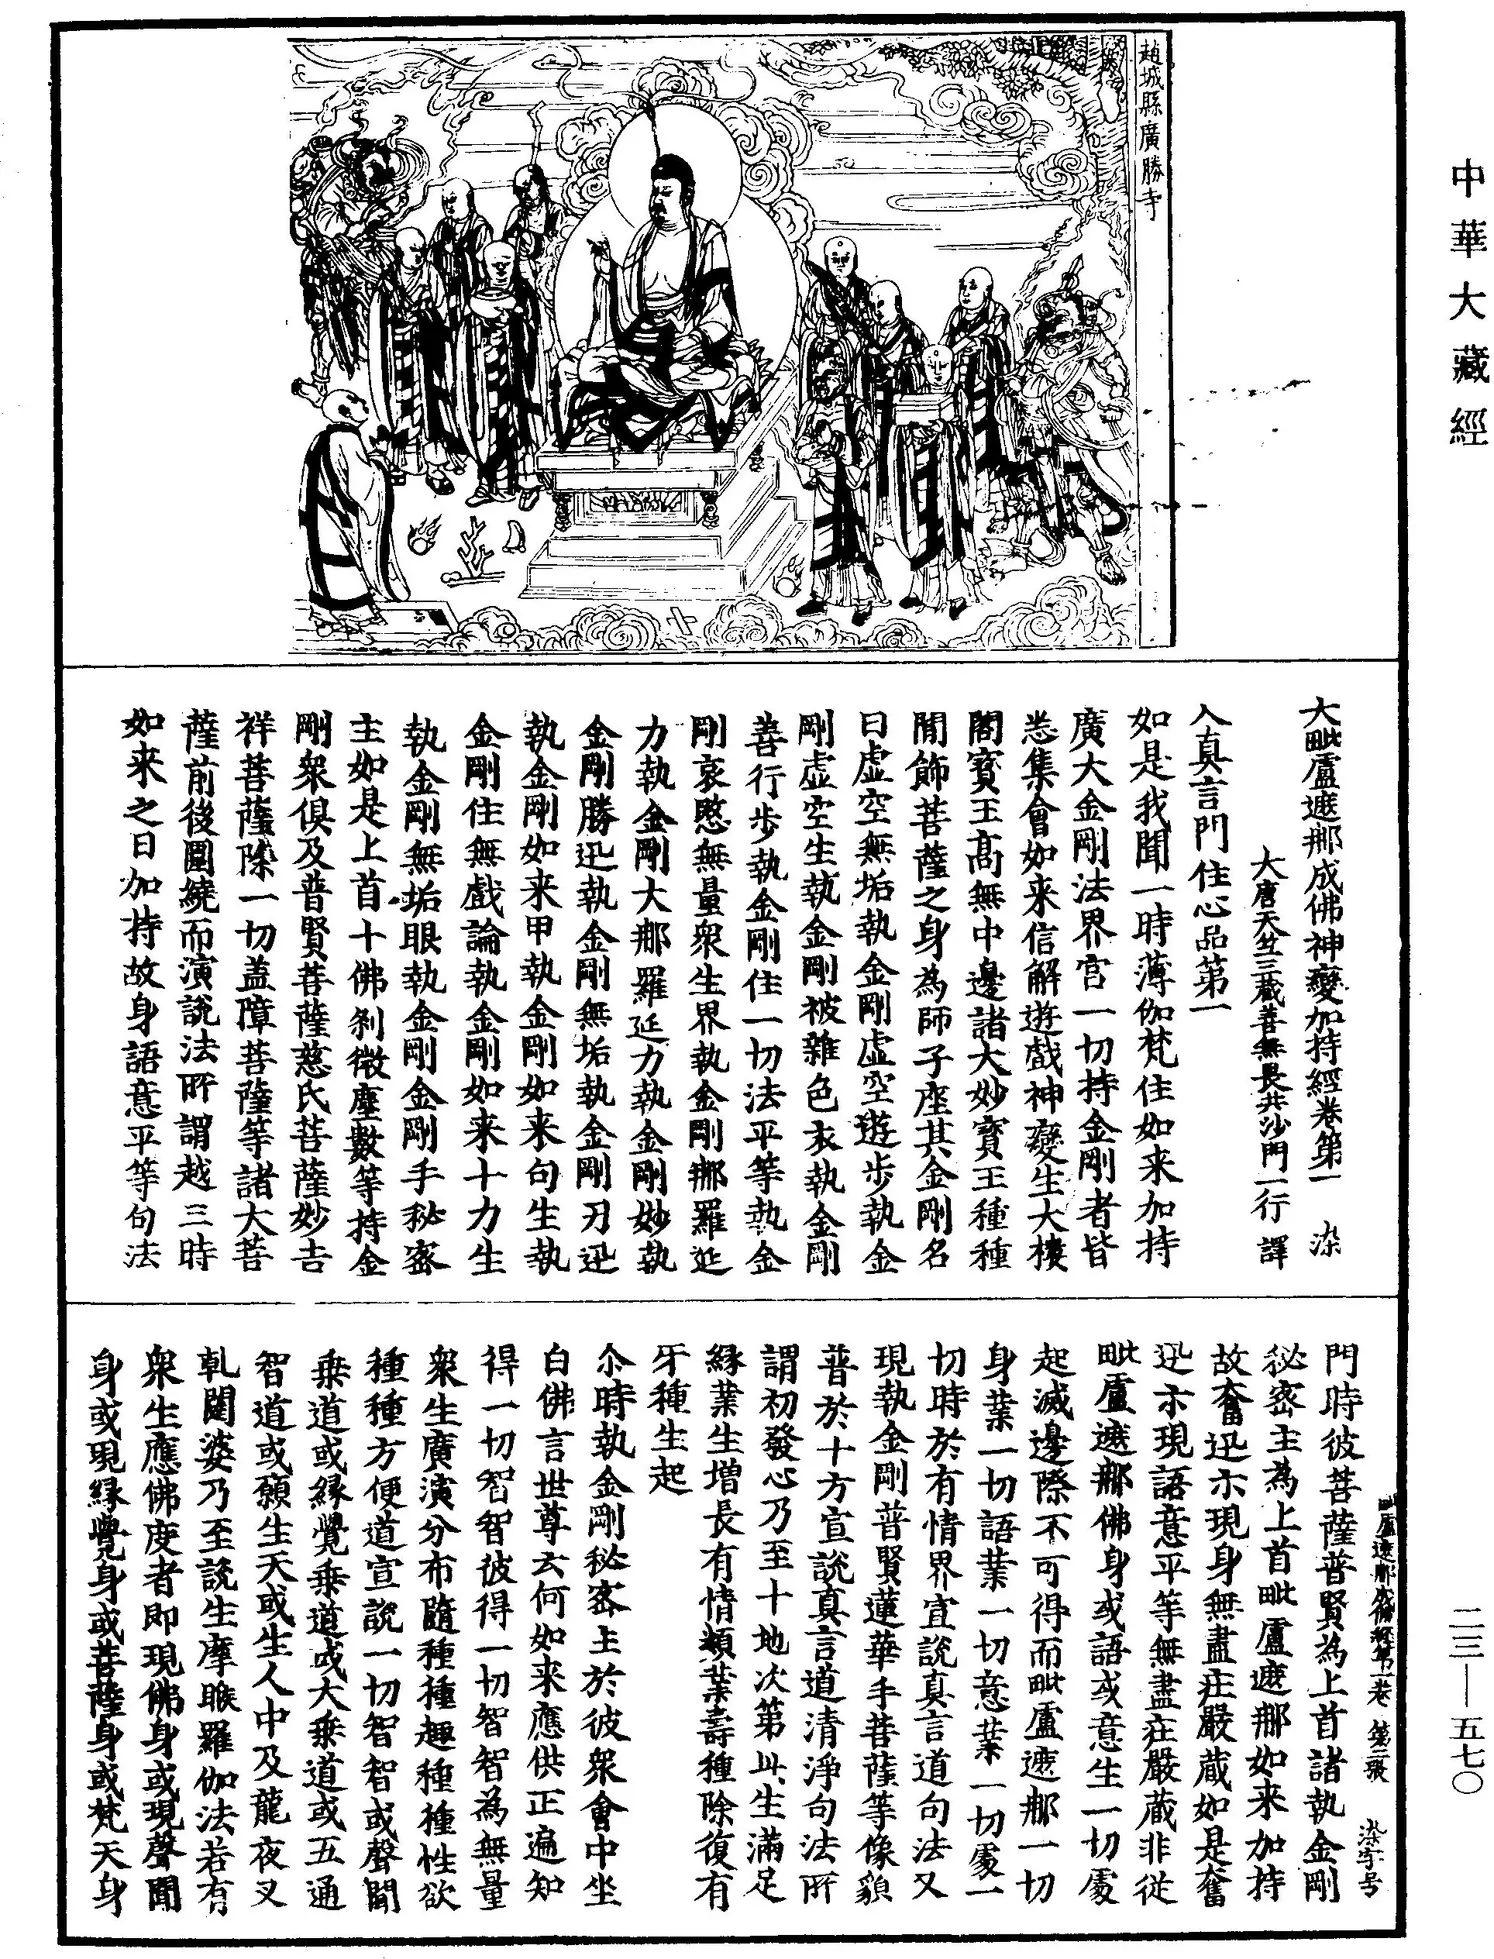 中華大藏經
趙城縣廣勝寺
大毗盧遮那成佛神變加持經卷第一　染
大唐天竺三藏善無畏共沙門一行譯
入真言門住心品第一
如是我聞一時薄伽梵住如来加持
廣大金剛法界宫一切持金剛者皆
悉集會如来信解遊戲神變生大樓
閣寶王髙無中邊諸大妙寶王種種
間飾菩薩之身為師子座其金剛名
曰虛空無垢執金剛虛空遊步執金
剛虛空生執金剛被雜色衣執金剛
善行步執金剛住一切法平等執金
剛哀愍無量衆生界執金剛那羅延
力執金剛大那羅延力執金剛妙執
金剛勝迅執金剛無垢執金剛刃迅
執金剛如来甲執金剛如来句生執
金剛住無戲論執金剛如来十力生
執金剛無垢眼執金剛金剛手秘密
主如是上首十佛刹微塵數等持金
剛衆俱及普賢菩薩慈氏菩薩妙吉
祥菩薩除一切盖障菩薩等諸大菩
薩前後圍繞而演說法所謂越三時
如来之日加持故身語意平等句法
毗盧遮那成佛經第一卷　第二張　染字号
門時彼菩薩普賢為上首諸執金剛
秘密主為上首毗盧遮那如来加持
故奮迅示現身無盡莊嚴藏如是奮
迅示現語意平等無盡莊嚴藏非從
毗盧遮那佛身或語或意生一切處
起滅邊際不可得而毗盧遮那一切
身業一切語業一切意業一切處一
切時於有情界宣說真言道句法又
現執金剛普賢蓮華手菩薩等像貌
普於十方宣說真言道清淨句法所
謂初發心乃至十地次第此生滿足
縁業生增長有情類業壽種除復有
牙種生起
尒時執金剛秘密主於彼衆會中坐
白佛言世尊云何如来應供正遍知
得一切智智彼得一切智智為無量
衆生廣演分布隨種種趣種種性欲
種種方便道宣說一切智智或聲聞
乗道或縁覺乗道或大乗道或五通
智道或願生天或生人中及龍夜叉
乹闥婆乃至說生摩睺羅伽法若有
衆生應佛度者即現佛身或現聲聞
身或現縁覺身或菩薩身或梵天身
二三—五七〇